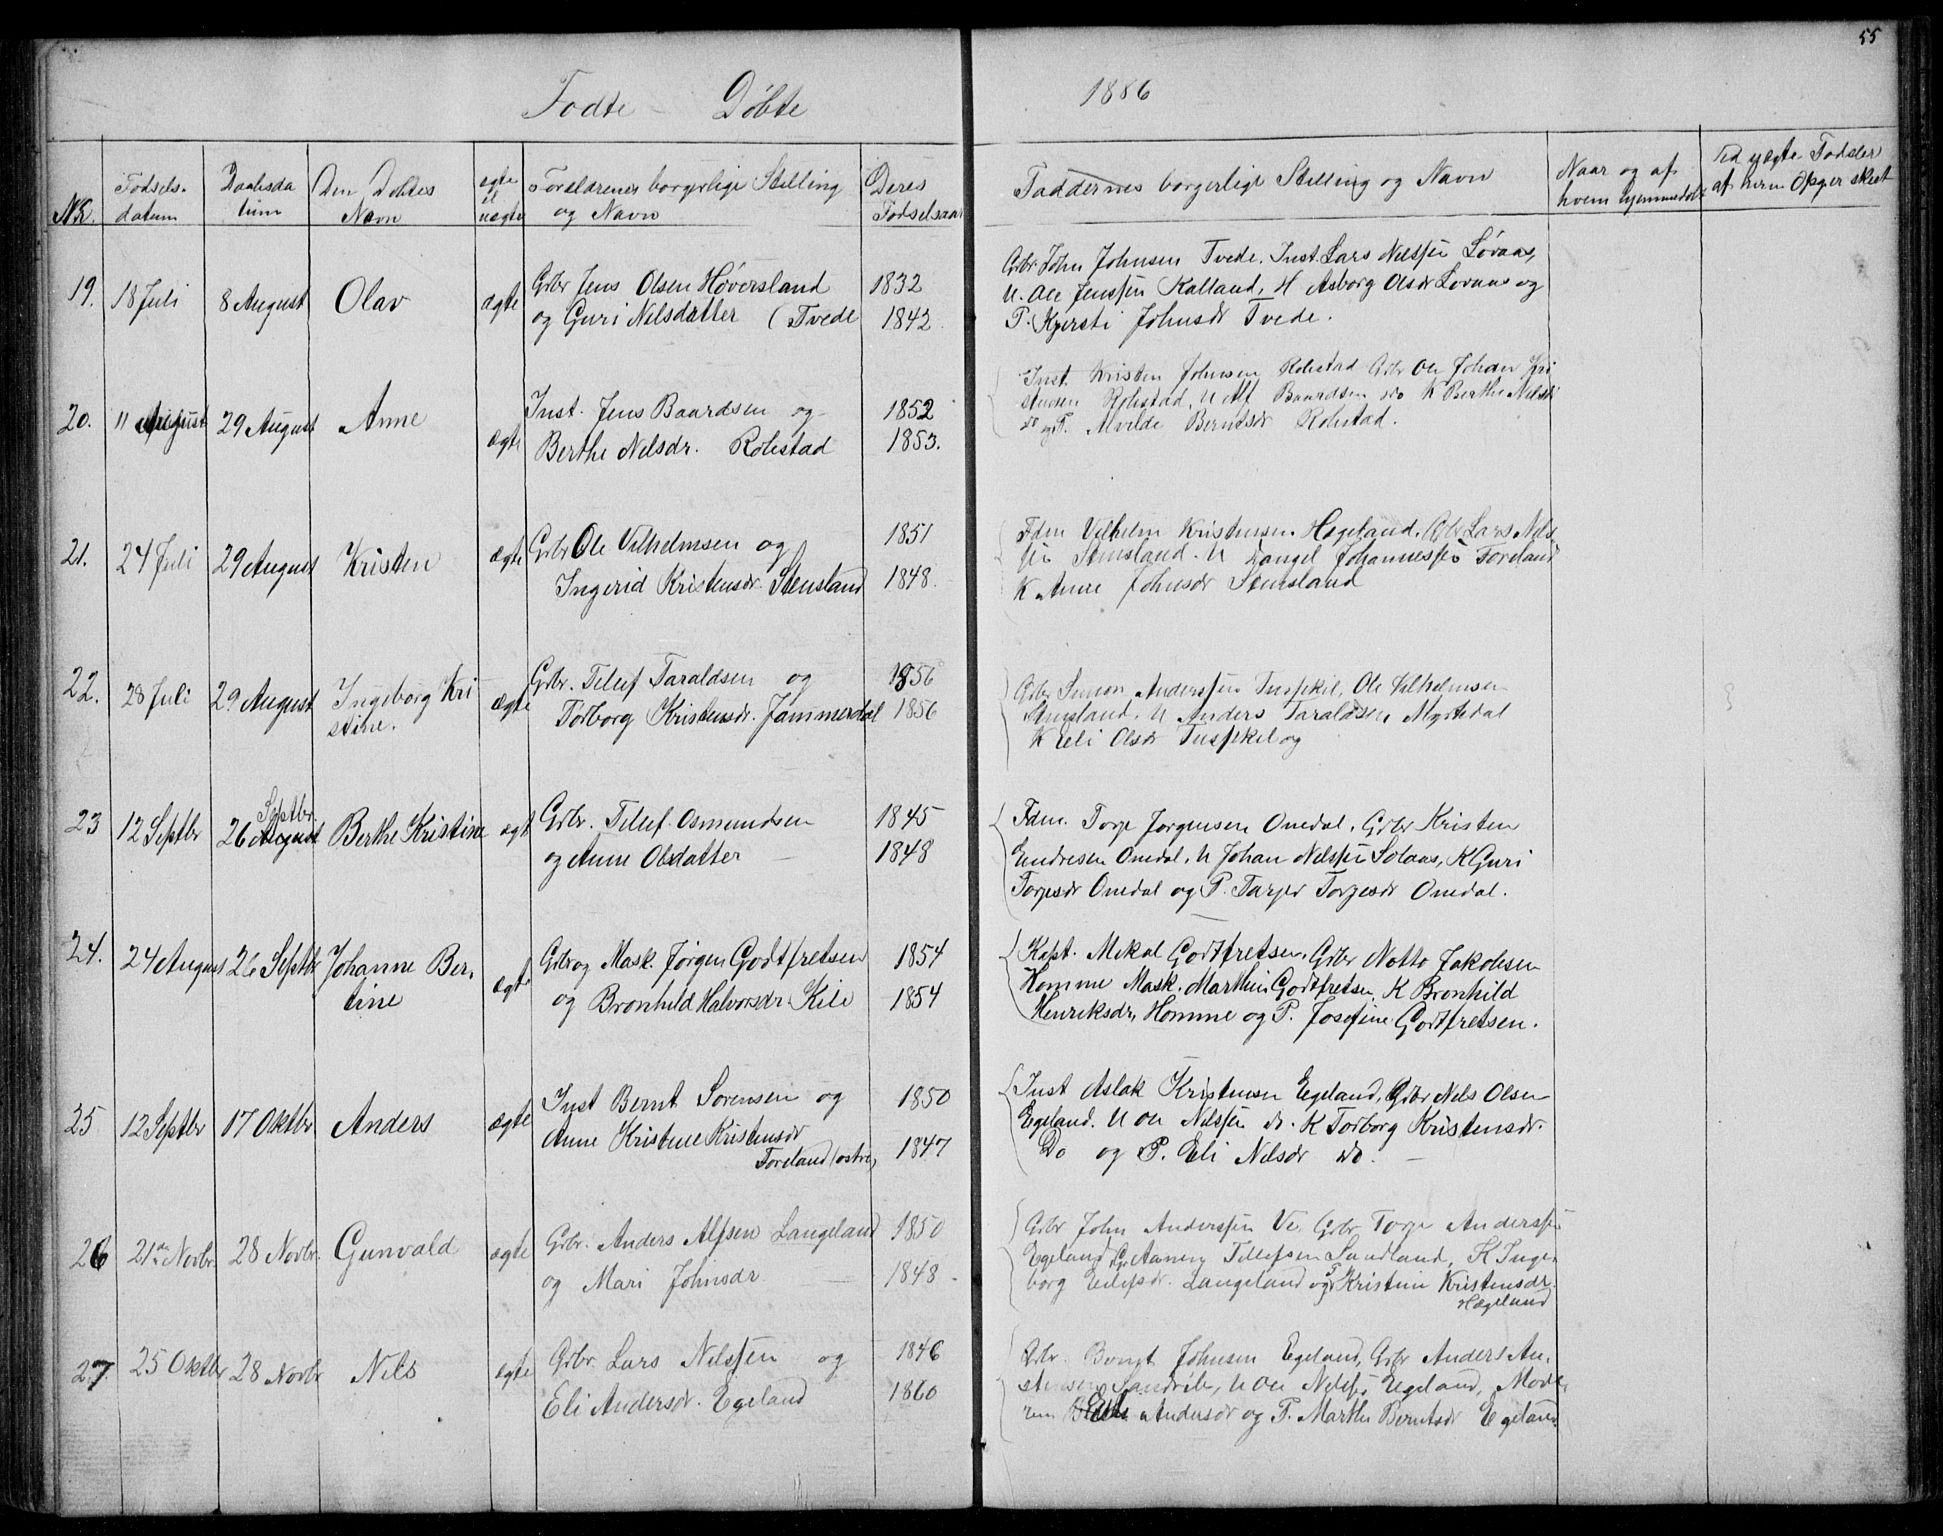 55
Fodte - Døbte 1886
Nr. Fodsels-datum Daabsdatum Den Dobtes Navn ægte el uægte Forældrenes borgerlige Stilling og Navn Deres Fodselsaar Faddernes borgerlige Stilling og Navn Naar og af hvem hjemmedøbt Ved uægte Fodsler af hvem Opgør skeet
19. 18 Juli 8 August Olav ægte Grbr Jens Olsen Høversland 1832
og Guri Nilsdatter (Tvede 1842.
Grbr John Johnsen Tvede. Inst. Lars Nilssen Løvaas,
U. Ole Jenssen Kalland, K Asborg Olsdr Løvaas og
P. Kjersti Johnsdr Tvede.
20. 11 August 29 August Anne ægte Inst. Jens Baardsen og 1852
Berthe Nelsdr. Robstad 1853.
Inst. Kristen Johnsen Robstad Grbr Ole Johan Kri
stensen Robstad, U Alf Baardsen do K Berthe Nilsdr
do og P. Alvilde Berntsdr Robstad.
21. 24 Juli 29 August Kristen ægte Grbr Ole Vilhelmsen og 1851
Ingerid Kristensdr. Stensland 1848.
Fdm Vilhelm Kristensen Hægeland. Grbr Lars Nils
sen Stensland. U Daniel Johannessen Foreland
K Anne Johnsdr Stensland
22. 28 Juli 29 August Ingeborg Kri
stine. ægte Grbr. Tellef Taraldsen og 1856
Torborg Kristensdr. Jammerdal 1856
Grbr Simon Anderssen Tusskil, Ole Vilhelmsen
Stensland. U Anders Taraldsen Myrtedal
K Eeli Olsdr Tusskil og
23 12 Septbr 26 August Septbr. Berthe Kristine ægt Grbr. Tellef Osmundsen 1845
og Anne Olsdatter — 1848
Fdm. Torje Jorgensen Omdal. Grbr Kristen
Endresen Omdal. U Johan Nilssen Solaas, K Guri
Torjesdr Omdal og P. Tarjer Torjesdr Omdal.
24. 24 August 26 Septbr Johanne Ber-
tine ægte Grbr og Mask. Jørgen Godtfretsen 1854
og Bronhild Halvorsdr. Kile 1854
Kapt. Mikal Godtfretsen. Grbr Notto Jakobsen
Homme Mask. Marthin Godtfretsen, K Bronhild
Henriksdr, Homme og P. Josefine Godtfretsen.
25 12 Septbr 17 Oktbr Anders ægte Inst Bernt Sorensen og 1850
Anne Kristine Kristensdr
Foreland (østre) 1847
Inst Aslak Kristensen Egeland, Grbr Nels Olsen
Egeland. U Ole Nilssen do. K Torborg Kristensdr.
Do og P. Eli Nelsdr do. —
26 21de Novbr. 28 Novbr. Gunvald ægte Grbr. Anders Alfsen Langeland 1850
og Mari Johnsdr — 1848.
Grbr John Anderssen Ve Grbr Torje Anderssen
Egeland U. Aanen Tellefsen Sandland, K Inge-
borg Eilefsdr. Langeland og P Kristine Kristensdr.
Hægeland
27. 25 Oktbr 28 Novbr Nils ægte Grbr. Lars Nilssen og 1846
Eli Andersdr. Egeland 1860
Grbr. Bengt Johnsen Egeland, Grbr Anders An-
stensen Sandrib, U Ole Nilssen Egeland, Mode-
ren Eli Andersdr og P. Marthe Berntsdr Egeland